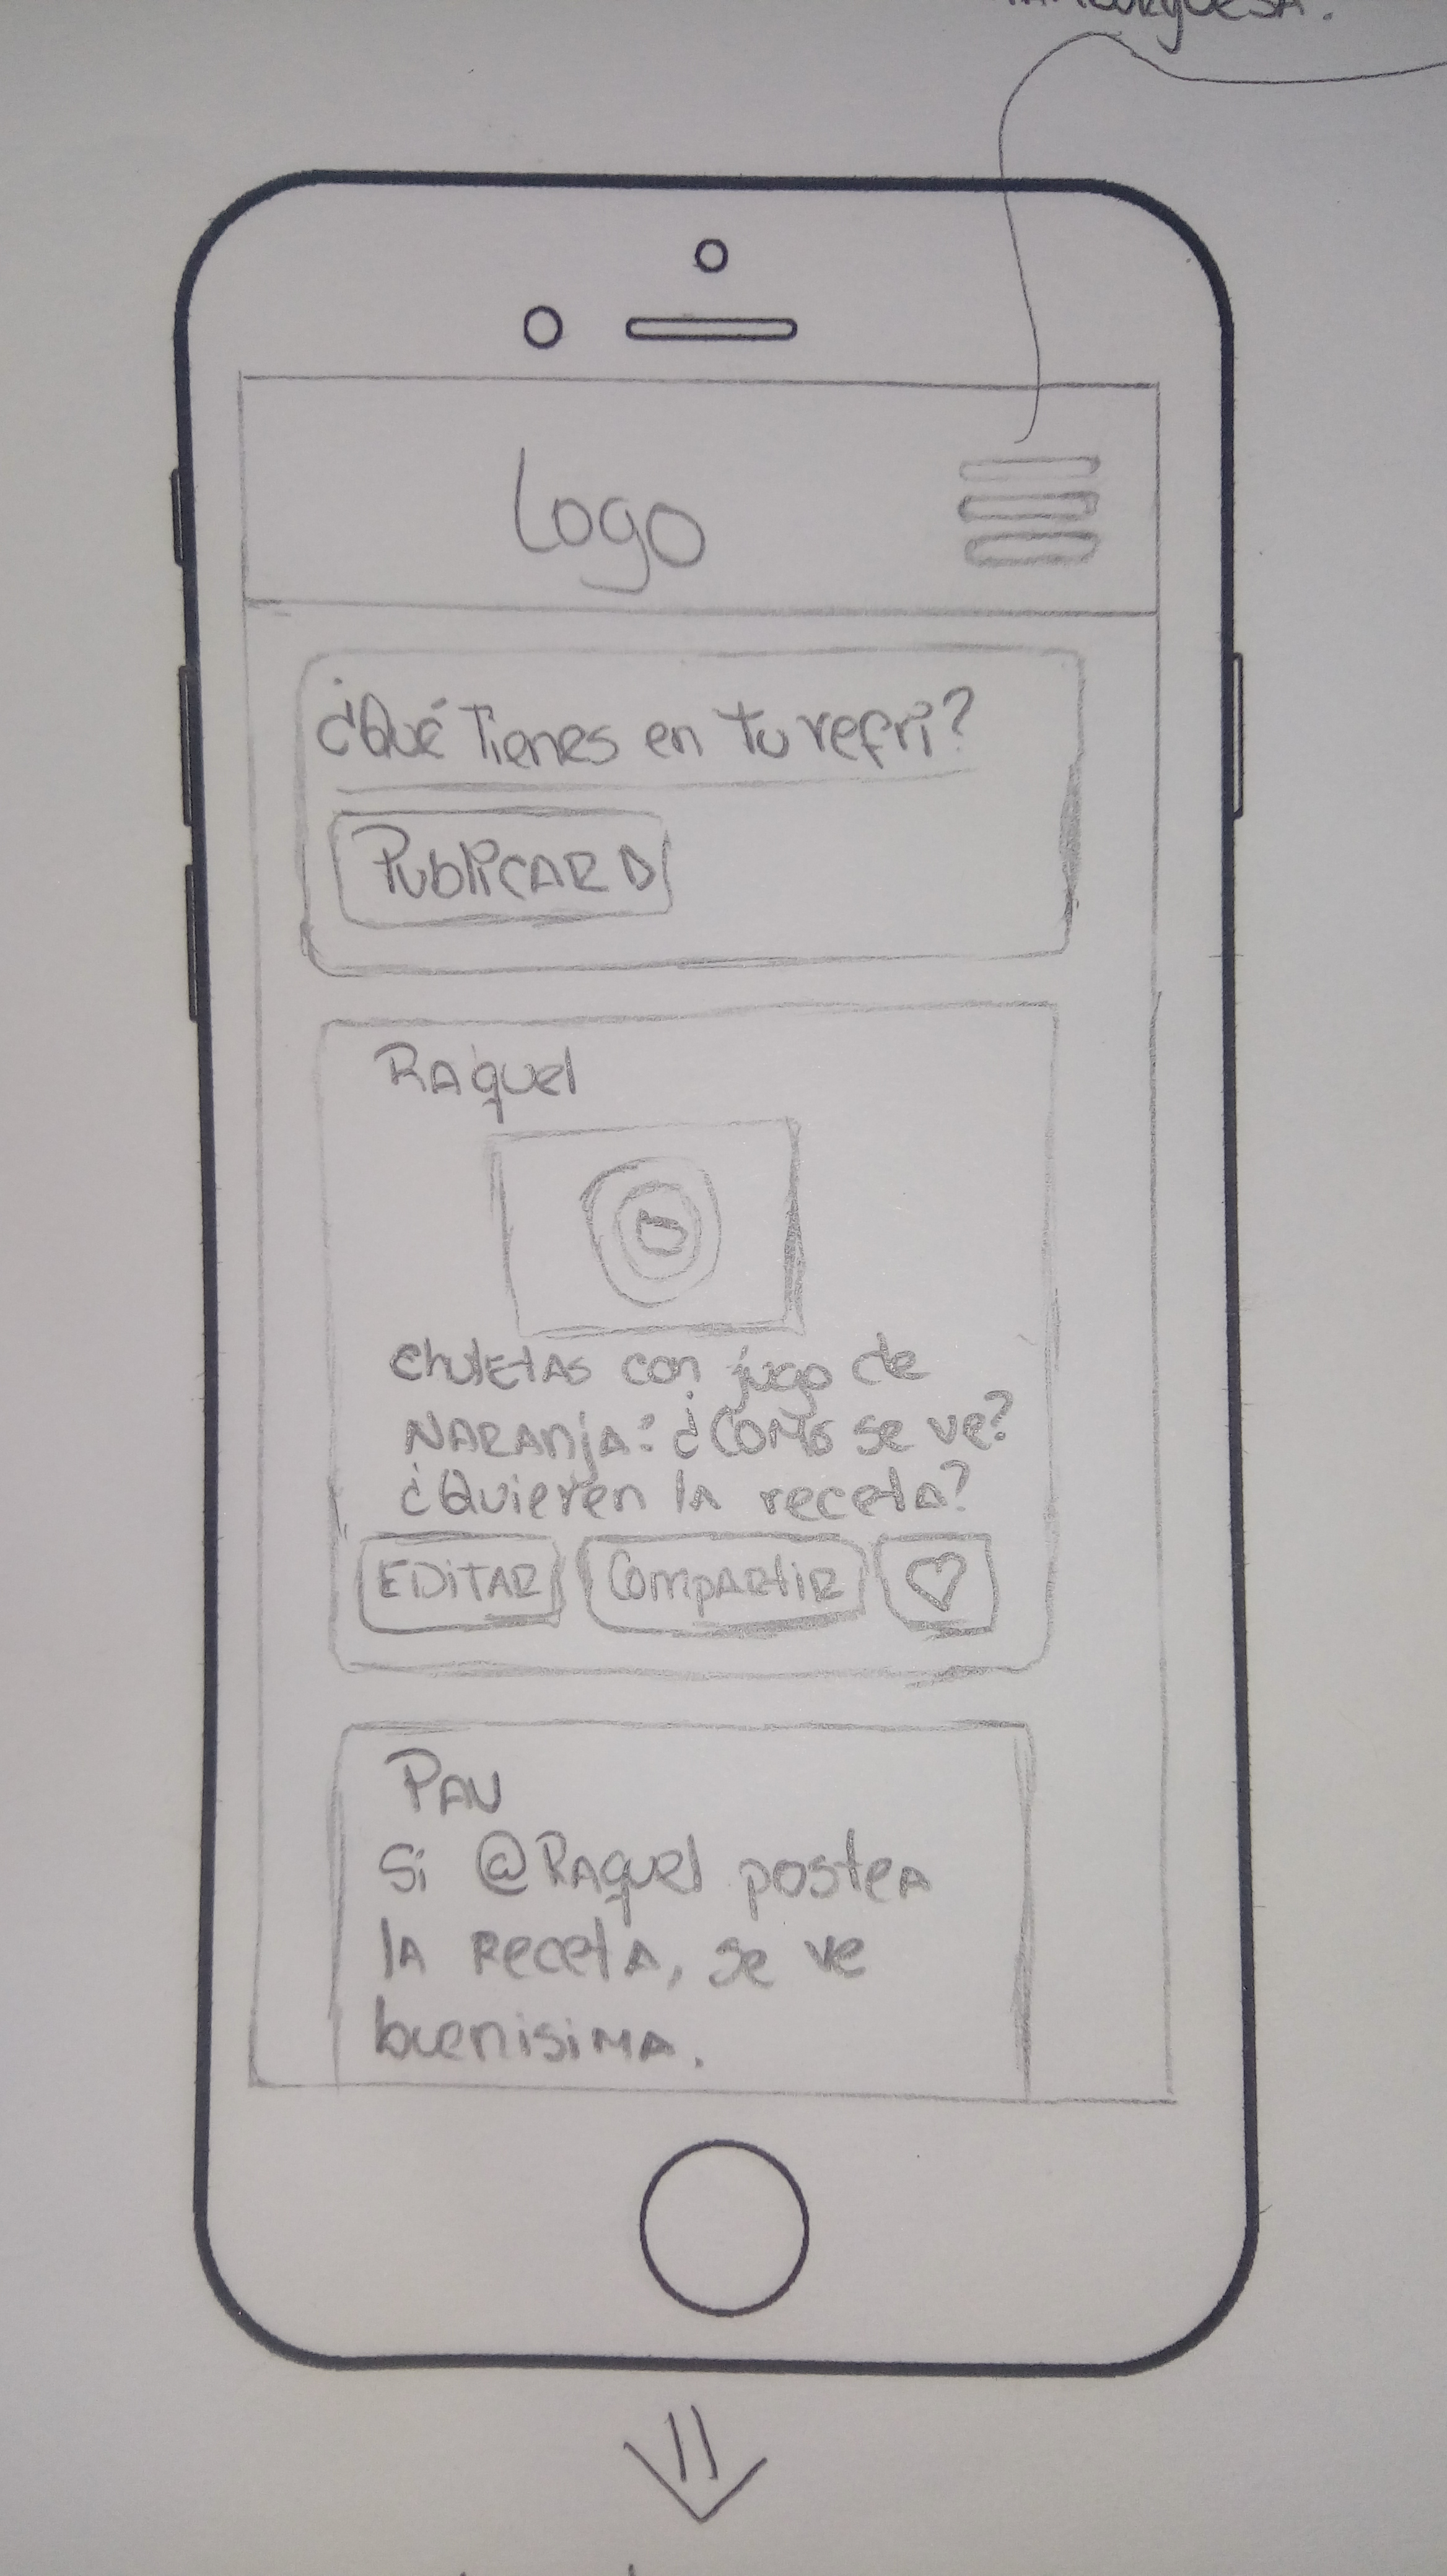 Logo
¿Qué Tienes en tu refri?
Publicar
Raquel
Chuletas con jugo de
Naranja: ¿Como se ve?
¿Quieren la receta?
EDITAR Compartir
Pau
Si @Raquel postea
la receta, se ve
buenisima.